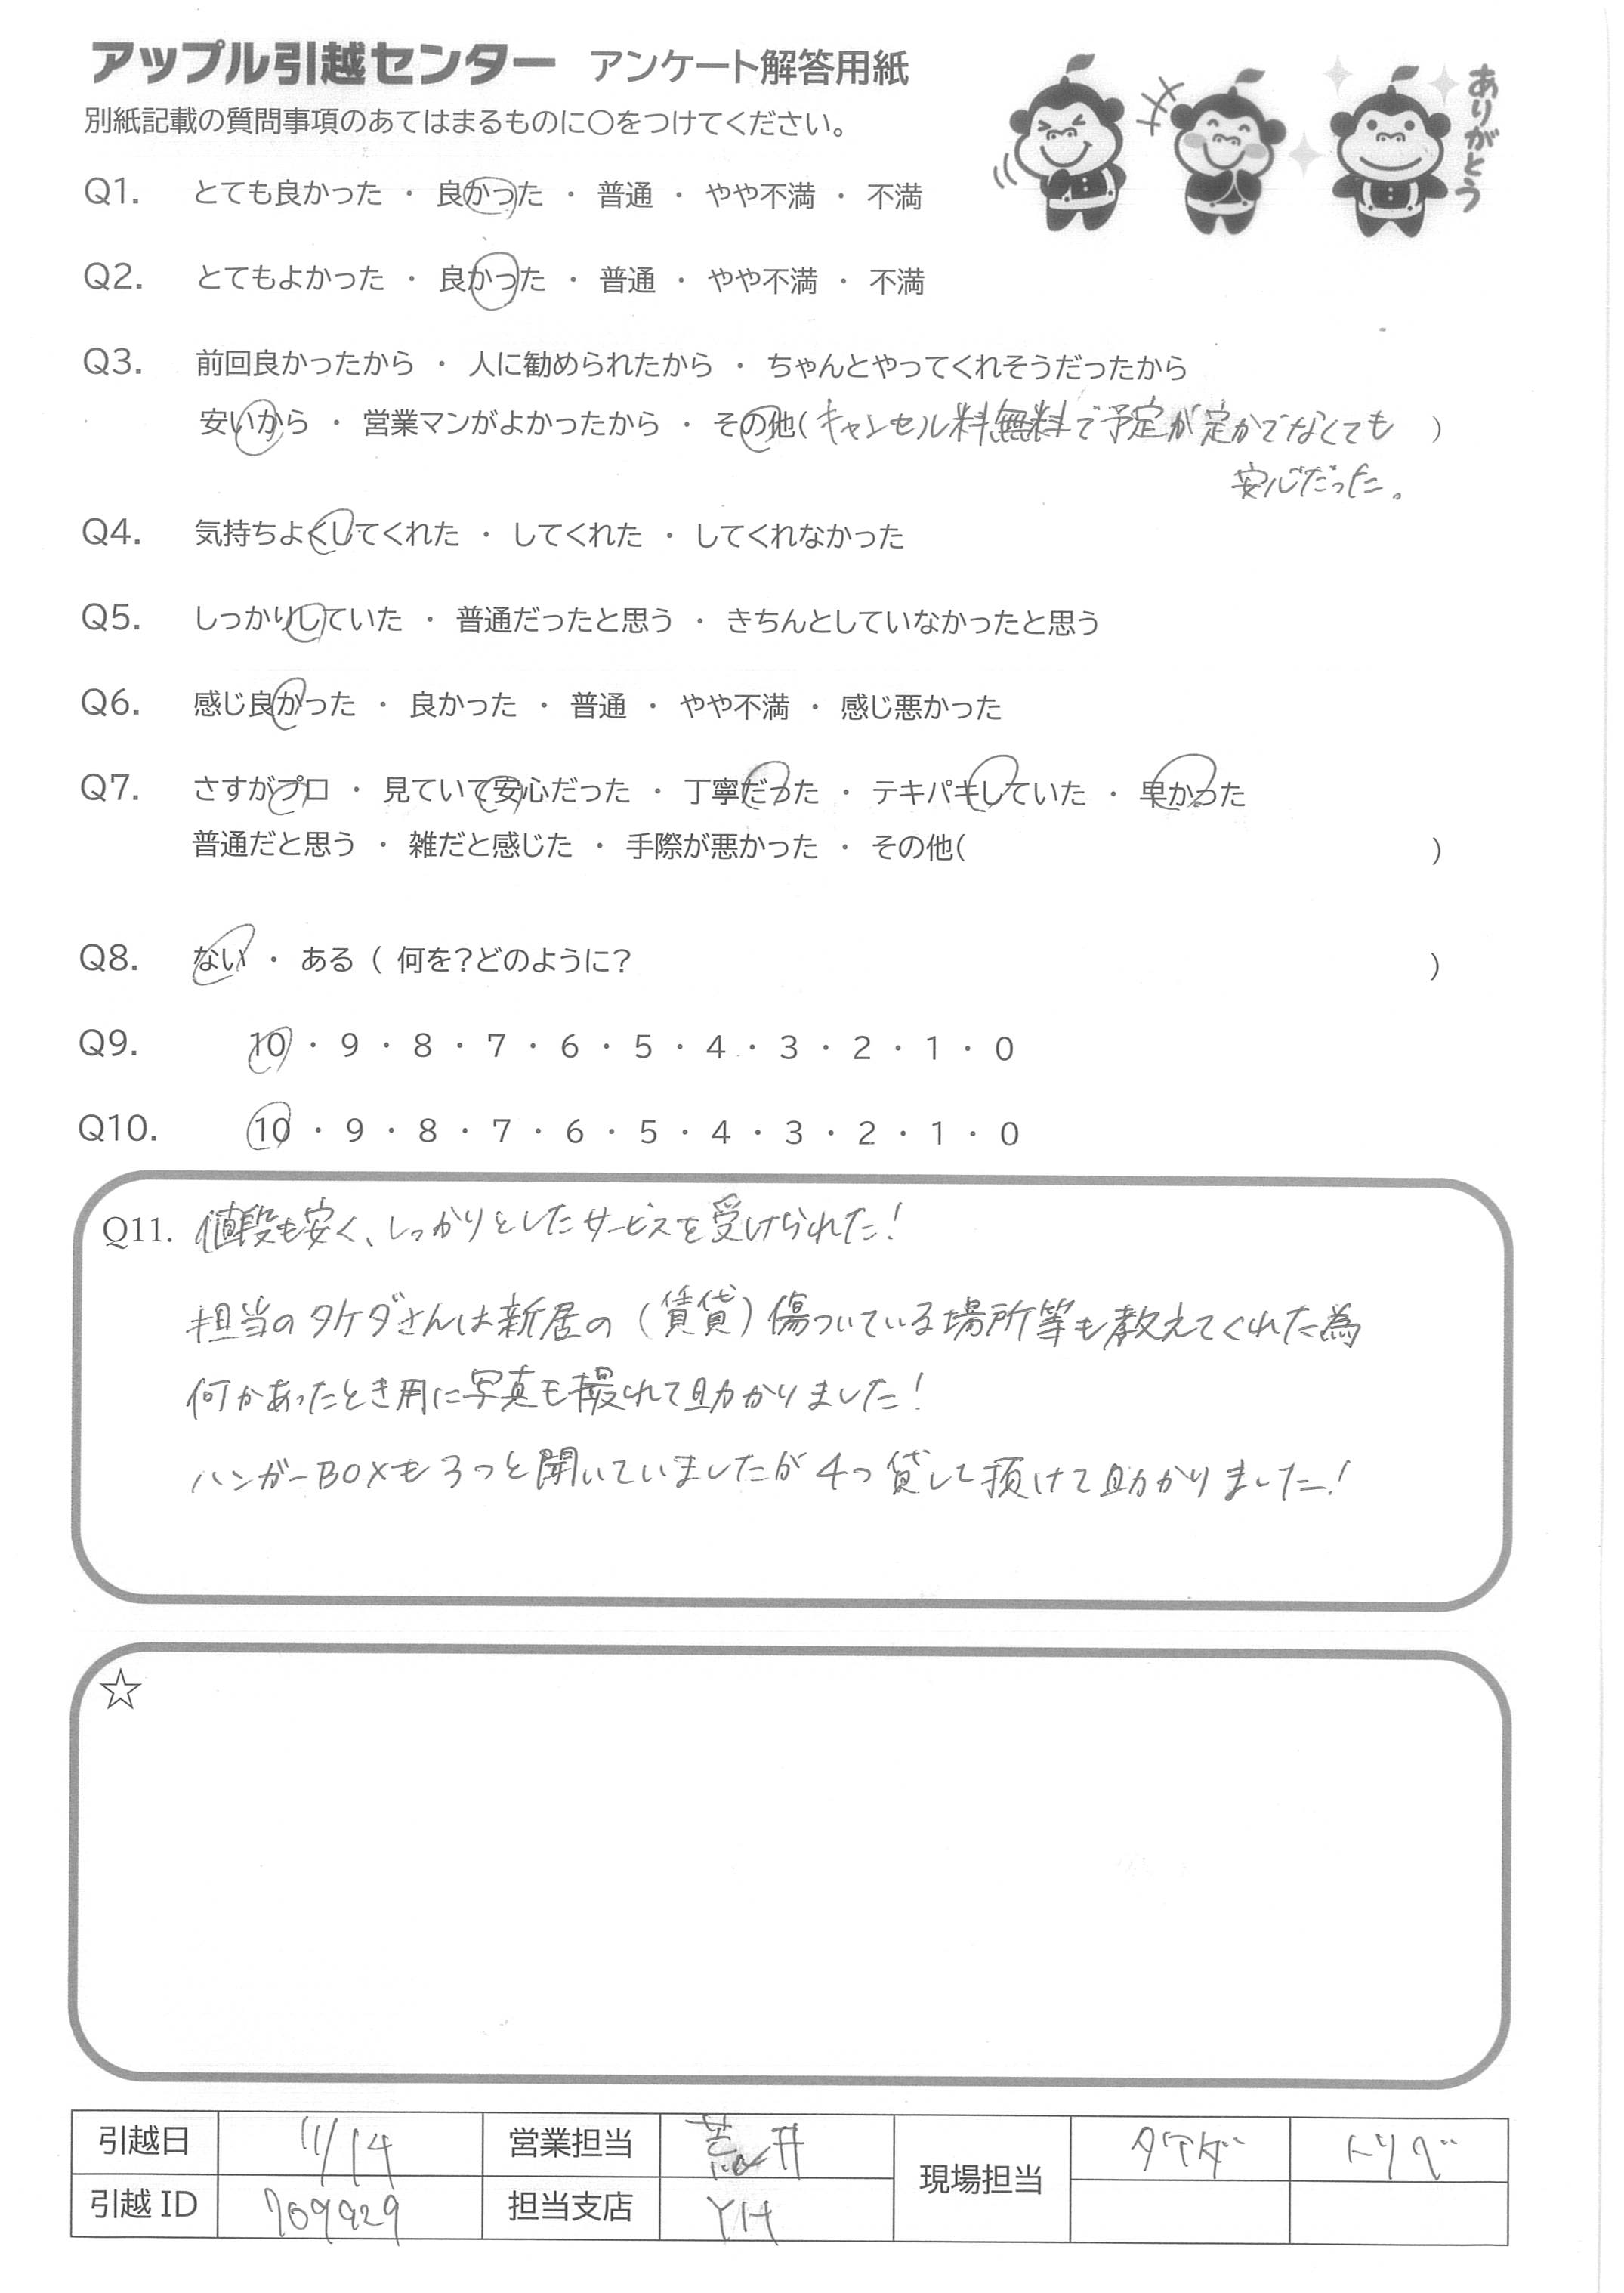 アップル引越センター アンケート解答用紙
別紙記載の質問事項のあてはまるものに○をつけてください。
ありがとう
Q1. とても良かった ・ 良かった ・ 普通 ・ やや不満 ・ 不満
Q2. とてもよかった ・ 良かった ・ 普通 ・ やや不満 ・ 不満
Q3. 前回良かったから ・ 人に勧められたから ・ ちゃんとやってくれそうだったから
安いから ・ 営業マンがよかったから ・ その他( キャンセル料無料で予定が定かでなくても )
安心だった。
Q4. 気持ちよくしてくれた ・ してくれた ・ してくれなかった
Q5. しっかりしていた ・ 普通だったと思う ・ きちんとしていなかったと思う
Q6. 感じ良かった ・ 良かった ・ 普通 ・ やや不満 ・ 感じ悪かった
Q7. さすがプロ ・ 見ていて安心だった ・ 丁寧だった ・ テキパキしていた ・ 早かった
普通だと思う ・ 雑だと感じた ・ 手際が悪かった ・ その他( )
Q8. ない ・ ある ( 何を?どのように? )
Q9. 10 ・ 9 ・ 8 ・ 7 ・ 6 ・ 5 ・ 4 ・ 3 ・ 2 ・ 1 ・ 0
Q10. 10 ・ 9 ・ 8 ・ 7 ・ 6 ・ 5 ・ 4 ・ 3 ・ 2 ・ 1 ・ 0
Q11. 値段も安く、しっかりとしたサービスを受けられた!
担当のタケダさんは新居の(賃貸)傷ついている場所等も教えてくれた為
何かあったとき用に写真も撮れて助かりました!
ハンガーBOXも3つと聞いていましたが4つ貸して頂けて助かりました!
☆
引越日 11/14 営業担当 荒井 現場担当 タケダ トリベ
引越ID 709929 担当支店 YH